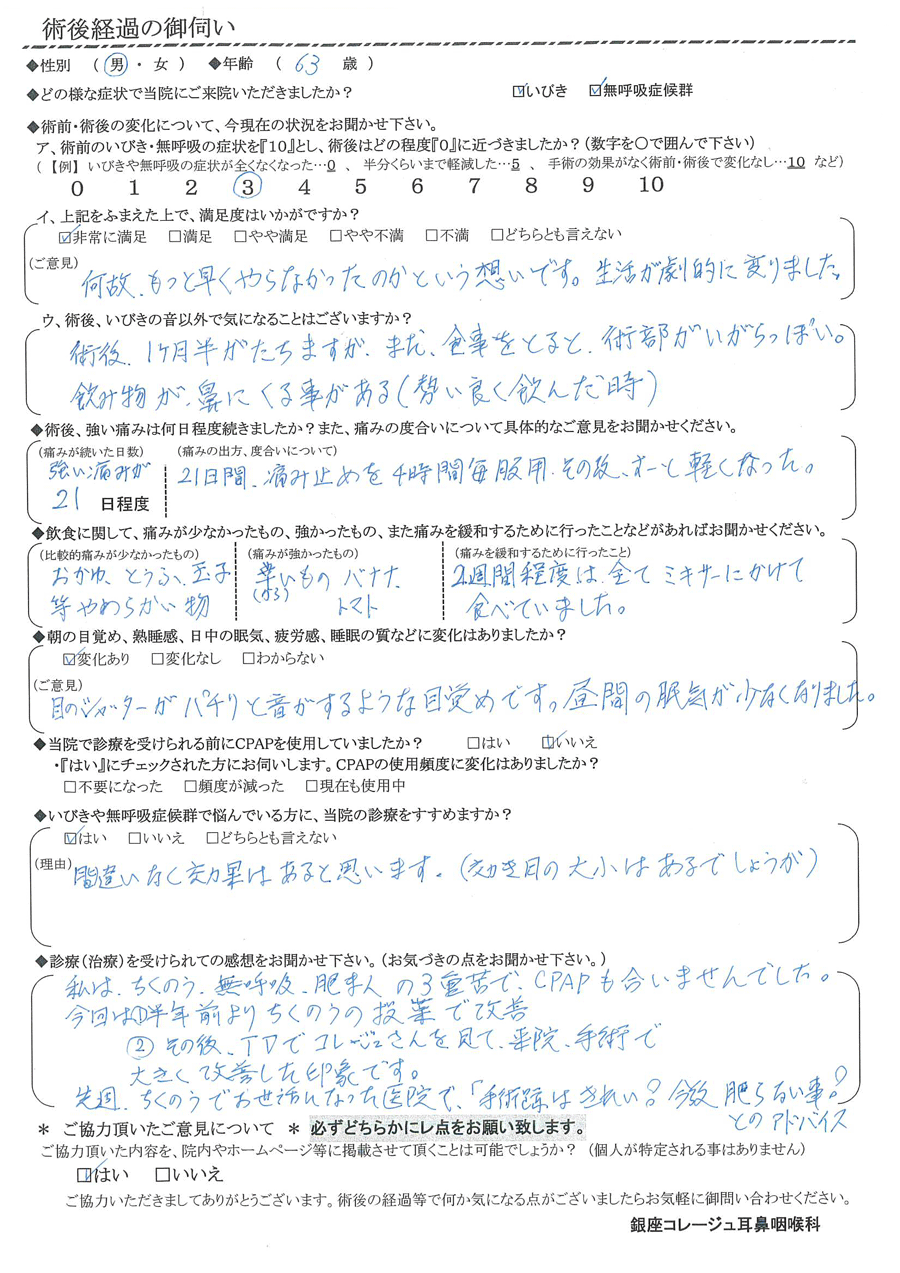 術後経過の御伺い
◆性別 （ 男 ・ 女 ） ◆年齢 （ 63 歳 ）
◆どの様な症状で当院にご来院いただきましたか？ ☑いびき ☑無呼吸症候群
◆術前・術後の変化について、今現在の状況をお聞かせ下さい。
ア、術前のいびき・無呼吸の症状を『10』とし、術後はどの程度『0』に近づきましたか？（数字を〇で囲んで下さい）
（【例】いびきや無呼吸の症状が全くなくなった…0 、 半分くらいまで軽減した…5 、 手術の効果がなく術前・術後で変化なし…10 など）
0 1 2 3 4 5 6 7 8 9 10
イ、上記をふまえた上で、満足度はいかがですか？
☑非常に満足 □満足 □やや満足 □やや不満 □不満 □どちらとも言えない
（ご意見）
何故、もっと早くやらなかったのかという想いです。生活が劇的に変りました。
ウ、術後、いびきの音以外で気になることはございますか？
術後、1ヶ月半がたちますが、まだ、食事をとると、術部がいがらっぽい。
飲み物が、鼻にくる事がある（勢い良く飲んだ時）
◆術後、強い痛みは何日程度続きましたか？また、痛みの度合いについて具体的なご意見をお聞かせください。
（痛みが続いた日数） （痛みの出方、度合いについて）
強い痛みが 21日間、痛み止めを4時間毎服用、その後、すーと軽くなった。
21 日程度
◆飲食に関して、痛みが少なかったもの、強かったもの、また痛みを緩和するために行ったことなどがあればお聞かせください。
（比較的痛みが少なかったもの） （痛みが強かったもの） （痛みを緩和するために行ったこと）
おかゆ、とうふ、玉子 いもの バナナ 2週間程度は、全てミキサーにかけて
等やわらかい物 トマト 食べていました。
◆朝の目覚め、熟睡感、日中の眠気、疲労感、睡眠の質などに変化はありましたか？
☑変化あり □変化なし □わからない
（ご意見）
目のシャッターがパチリと音がするような目覚めです。昼間の眠気が少なくなりました。
◆当院で診療を受けられる前にCPAPを使用していましたか？ □はい ☑いいえ
・『はい』にチェックされた方にお伺いします。CPAPの使用頻度に変化はありましたか？
□不要になった □頻度が減った □現在も使用中
◆いびきや無呼吸症候群で悩んでいる方に、当院の診療をすすめますか？
☑はい □いいえ □どちらとも言えない
（理由）
間違いなく効果はあると思います。（効き目の大小はあるでしょうが）
◆診療（治療）を受けられての感想をお聞かせ下さい。（お気づきの点をお聞かせ下さい。）
私は、ちくのう、無呼吸、肥まんの3重苦で、CPAPも合いませんでした。
今回は①半年前よりちくのうの投薬で改善
② その後、でコレージュさんを見て、来院、手術で
大きく改善した印象です。
先週、ちくのうでお世話になった医院で、「手術跡はきれい？ 今後 肥らない事？
とのアドバイス
＊ ご協力頂いたご意見について ＊ 必ずどちらかにレ点をお願い致します。
ご協力頂いた内容を、院内やホームページ等に掲載させて頂くことは可能でしょうか？ （個人が特定される事はありません）
☑はい □いいえ
ご協力いただきましてありがとうございます。術後の経過等で何か気になる点がございましたらお気軽に御問い合わせください。
銀座コレージュ耳鼻咽喉科